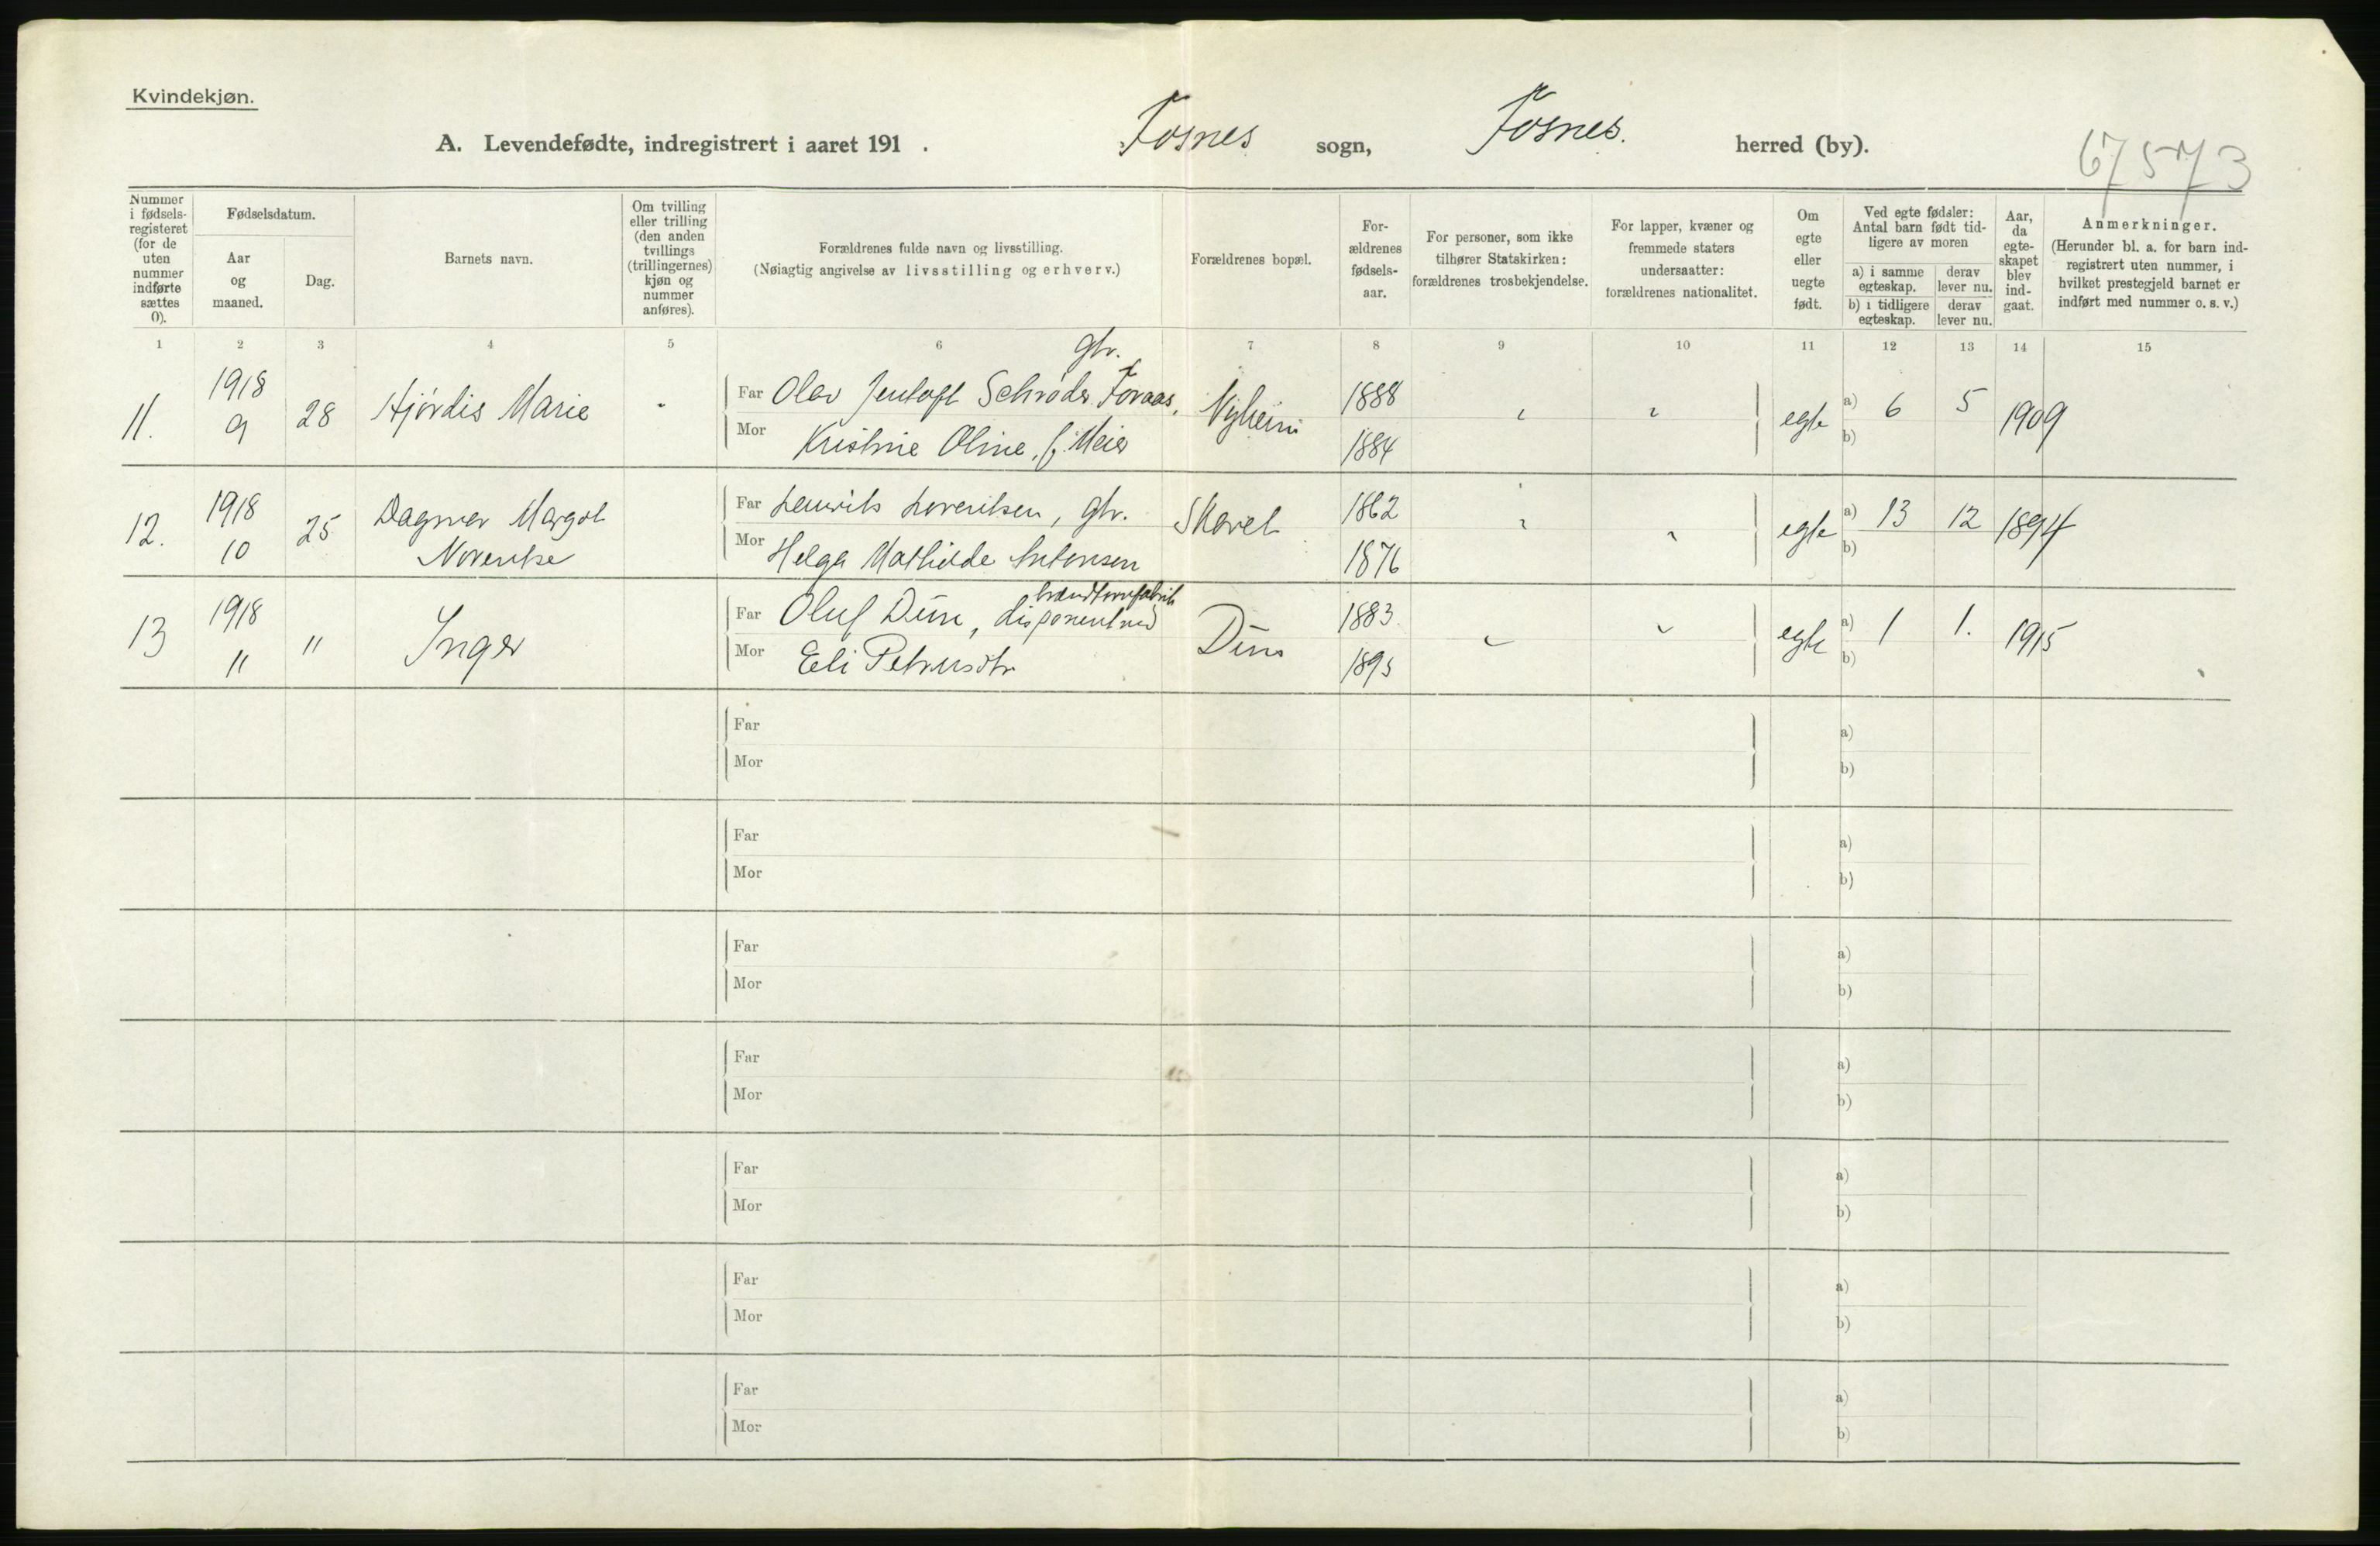 Kvindekjøn.
A. Levendefødte, indregistrert i aaret 191 . Fosnes sogn, Fosnes. herred (by).
67573
Nummer i fødsels-registeret (for de uten nummer indførte sættes 0).
Fødselsdatum.
Aar og maaned.
Dag.
Barnets navn.
Om tvilling eller trilling (den anden tvillings (trillingernes) kjøn og nummer anføres).
Forældrenes fulde navn og livsstilling.
(Nøiagtig angivelse av livsstilling og erhverv.)
Forældrenes bopæl.
For-ældrenes fødsels-aar.
For personer, som ikke tilhører Statskirken: forældrenes trosbekjendelse.
For lapper, kvæner og fremmede staters undersaatter: forældrenes nationalitet.
Om egte eller uegte født.
Ved egte fødsler: Antal barn født tid-ligere av moren
a) i samme egteskap.
derav lever nu.
b) i tidligere egteskap.
derav lever nu.
Aar, da egte-skapet blev ind-gaat.
Anmerkninger.
(Herunder bl. a. for barn ind-registrert uten nummer, i hvilket prestegjeld barnet er indført med nummer o. s. v.)
1 2 3 4 5 6 7 8 9 10 11 12 13 14 15
11. 1918 9 28 Hjørdis Marie
gbr.
Far Olav Jentoft Schrøder Foraas,
Mor Kristine Oline, f. Meier
1888
1884
egte a) 6 5 1909
b)
12. 1918 10 25 Dagmar Margot
Far Laurits Lorentsen, gbr.
Mor Helga Mathilde Antonsen
1862
1876
egte a) 13 12 1894
b)
13 1918 11 " Inger
Far Oluf Dun, disponent ved
Mor Eli Petrusdtr
Dun
1883
1895
egte a) 1 1. 1915
b)
Far
Mor
a)
b)
Far
Mor
a)
b)
Far
Mor
a)
b)
Far
Mor
a)
b)
Far
Mor
a)
b)
Far
Mor
a)
b)
Far
Mor
a)
b)